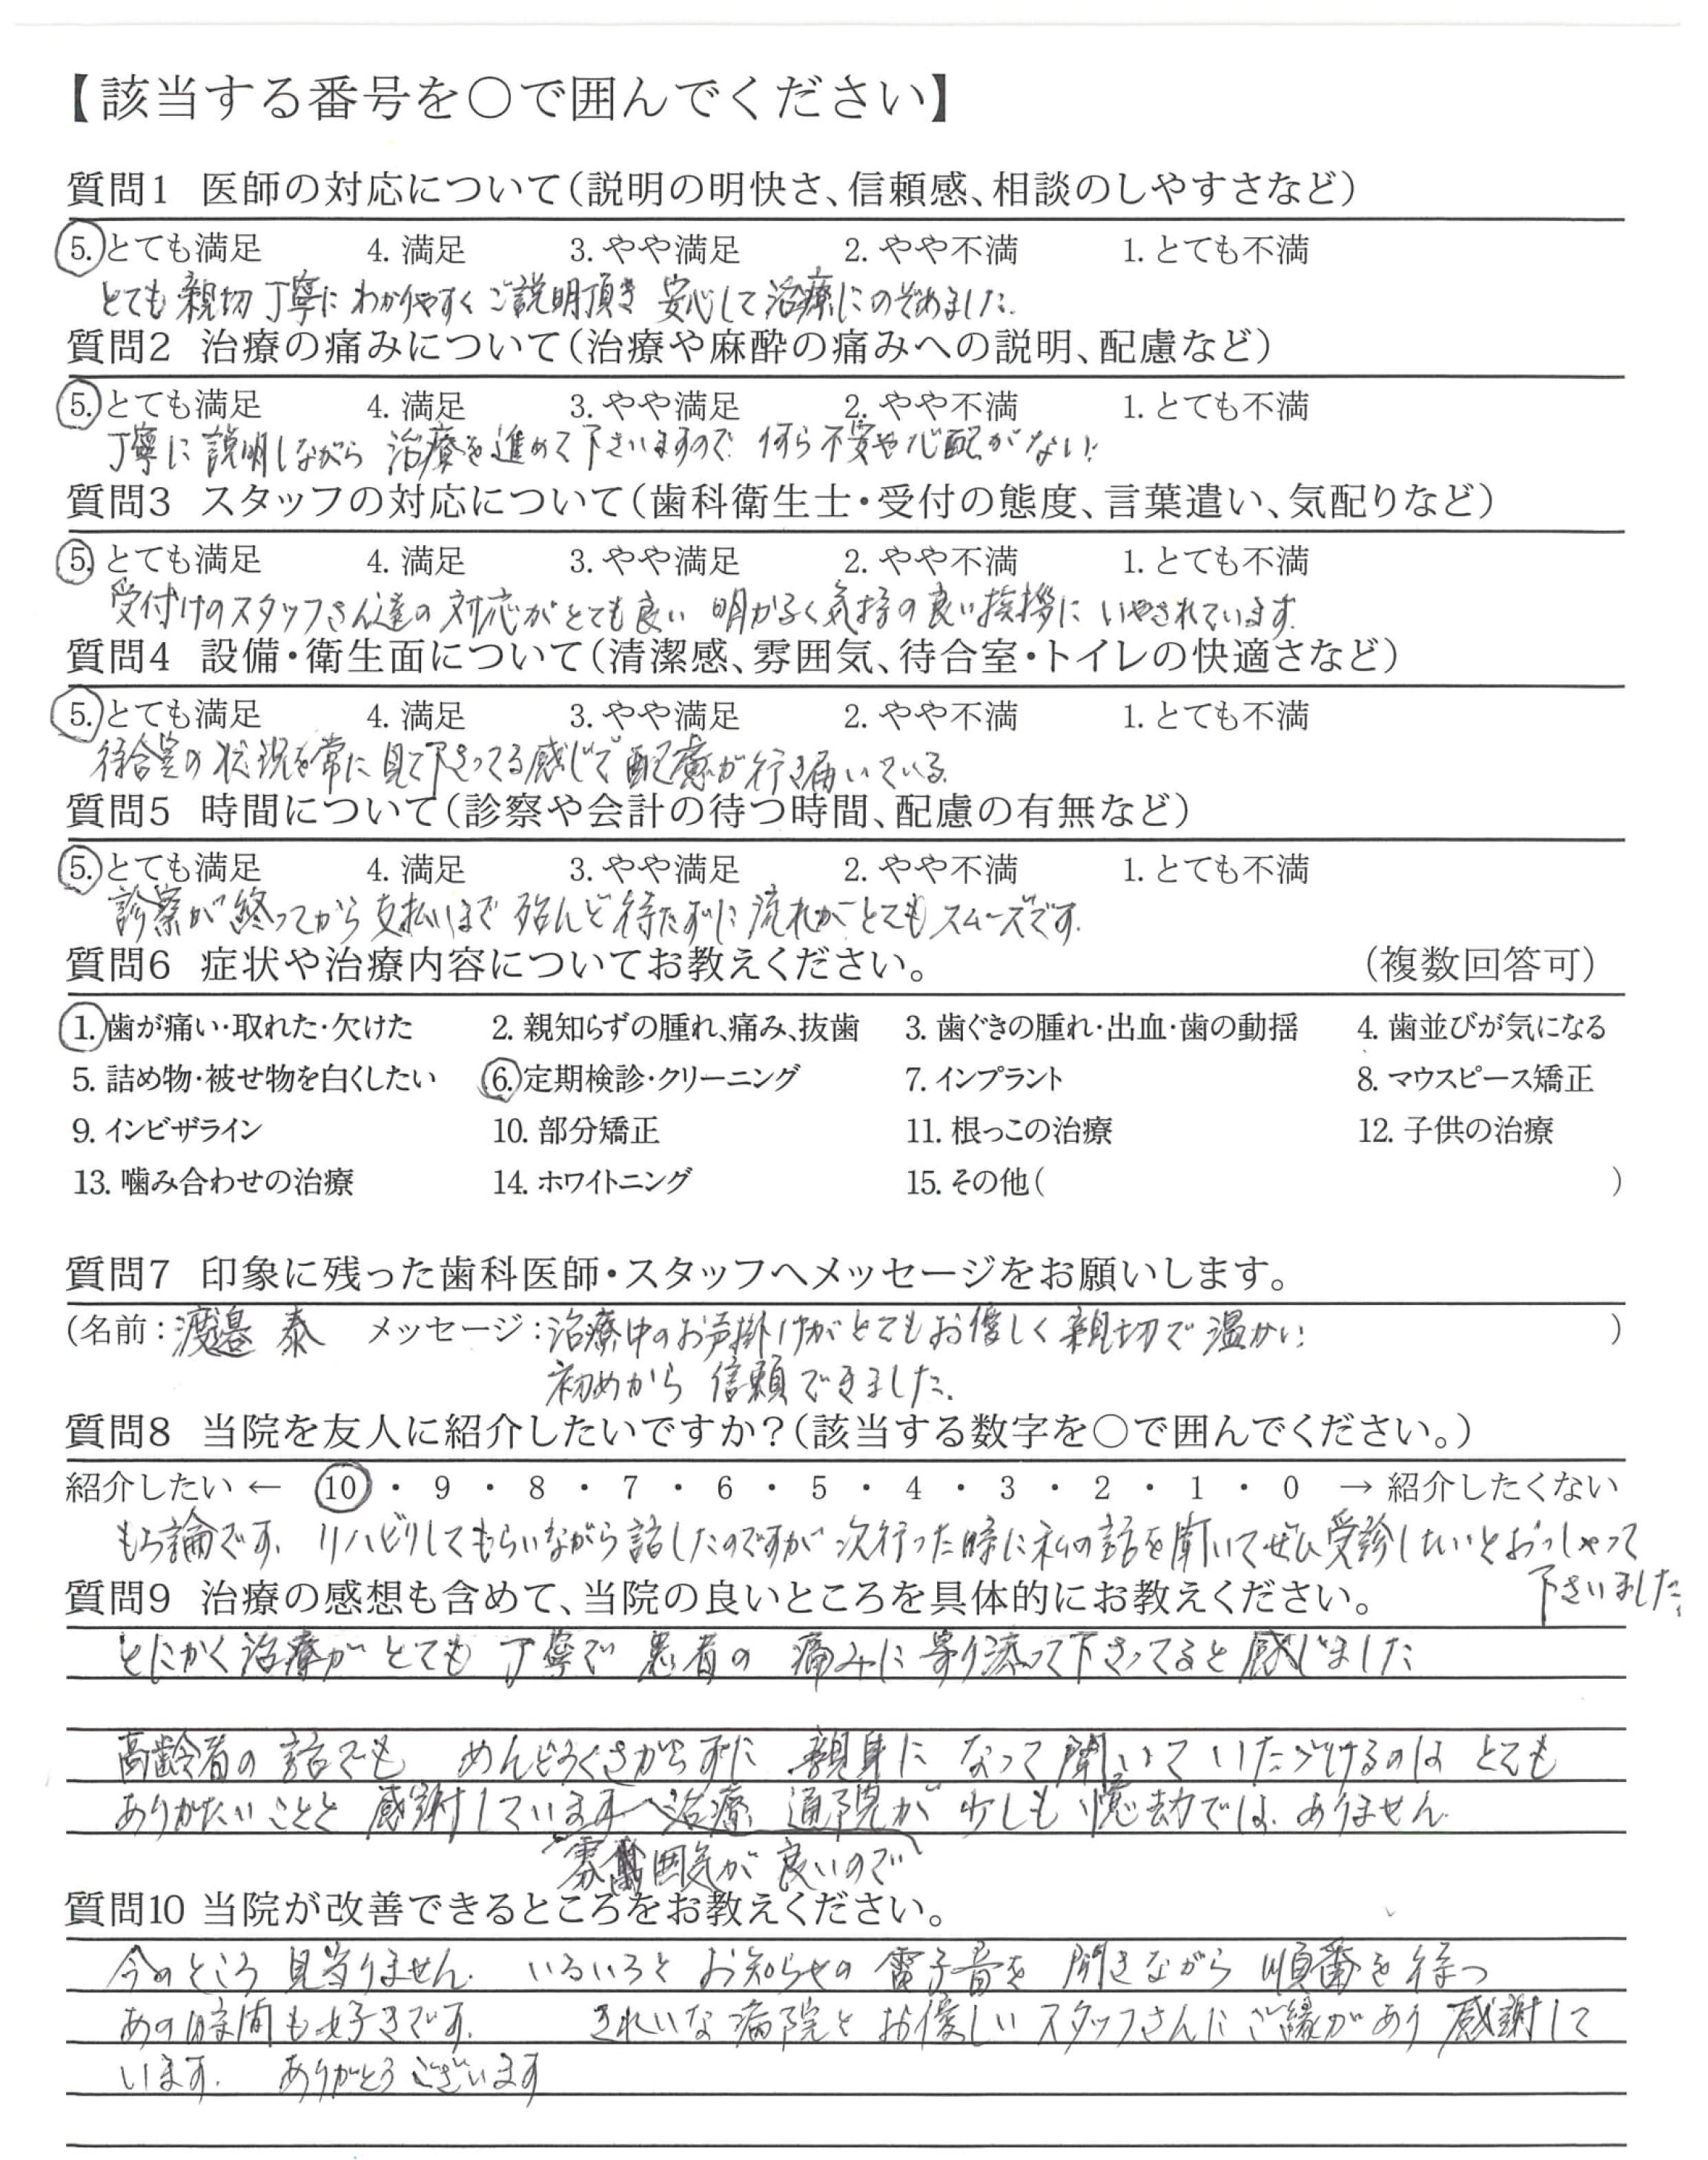 【該当する番号を〇で囲んでください】
質問1 医師の対応について(説明の明快さ、信頼感、相談のしやすさなど)
5. とても満足 4. 満足 3. やや満足 2. やや不満 1. とても不満
とても親切丁寧にわかりやすくご説明頂き安心して治療にのぞめました.
質問2 治療の痛みについて(治療や麻酔の痛みへの説明、配慮など)
5. とても満足 4. 満足 3. やや満足 2. やや不満 1. とても不満
丁寧に説明しながら治療を進めて下さいますので何ら不安や心配がない.
質問3 スタッフの対応について(歯科衛生士・受付の態度、言葉遣い、気配りなど)
5. とても満足 4. 満足 3. やや満足 2. やや不満 1. とても不満
受付けのスタッフさん達の対応がとても良い 明かるく気持の良い挨拶にいやされています.
質問4 設備・衛生面について(清潔感、雰囲気、待合室・トイレの快適さなど)
5. とても満足 4. 満足 3. やや満足 2. やや不満 1. とても不満
待合室の状況を常に見て下さってる感じで配慮が行き届いている.
質問5 時間について(診察や会計の待つ時間、配慮の有無など)
5. とても満足 4. 満足 3. やや満足 2. やや不満 1. とても不満
診察が終ってから支払いまで殆んど待たずに流れがとてもスムーズです.
質問6 症状や治療内容についてお教えください。 (複数回答可)
1. 歯が痛い・取れた・欠けた 2. 親知らずの腫れ、痛み、抜歯 3. 歯ぐきの腫れ・出血・歯の動揺 4. 歯並びが気になる
5. 詰め物・被せ物を白くしたい 6. 定期検診・クリーニング 7. インプラント 8. マウスピース矯正
9. インビザライン 10. 部分矯正 11. 根っこの治療 12. 子供の治療
13. 噛み合わせの治療 14. ホワイトニング 15. その他( )
質問7 印象に残った歯科医師・スタッフへメッセージをお願いします。
(名前：渡邉 泰 メッセージ：治療中のお声掛けがとてもお優しく親切で温かい )
初めから信頼できました.
質問8 当院を友人に紹介したいですか？(該当する数字を〇で囲んでください。)
紹介したい ← 10 ・ 9 ・ 8 ・ 7 ・ 6 ・ 5 ・ 4 ・ 3 ・ 2 ・ 1 ・ 0 → 紹介したくない
もち論です. リハビリしてもらいながら話したのですが次行った時に私の話を聞いてぜひ受診したいとおっしゃって
下さいました.
質問9 治療の感想も含めて、当院の良いところを具体的にお教えください。
とにかく治療がとても丁寧で患者の痛みに寄り添って下さってると感じました
高齢者の話でも めんどうくさがらずに 親身になって聞いていただけるのはとても
ありがたいことと感謝しています 治療 通院が少しも億劫ではありません.
雰囲気が良いので
質問10 当院が改善できるところをお教えください。
今のところ見当りません. いろいろとお知らせの電子音を聞きながら順番を待つ
あの時間も好きです. きれいな病院とお優しいスタッフさんにご縁があり感謝して
います. ありがとうございます